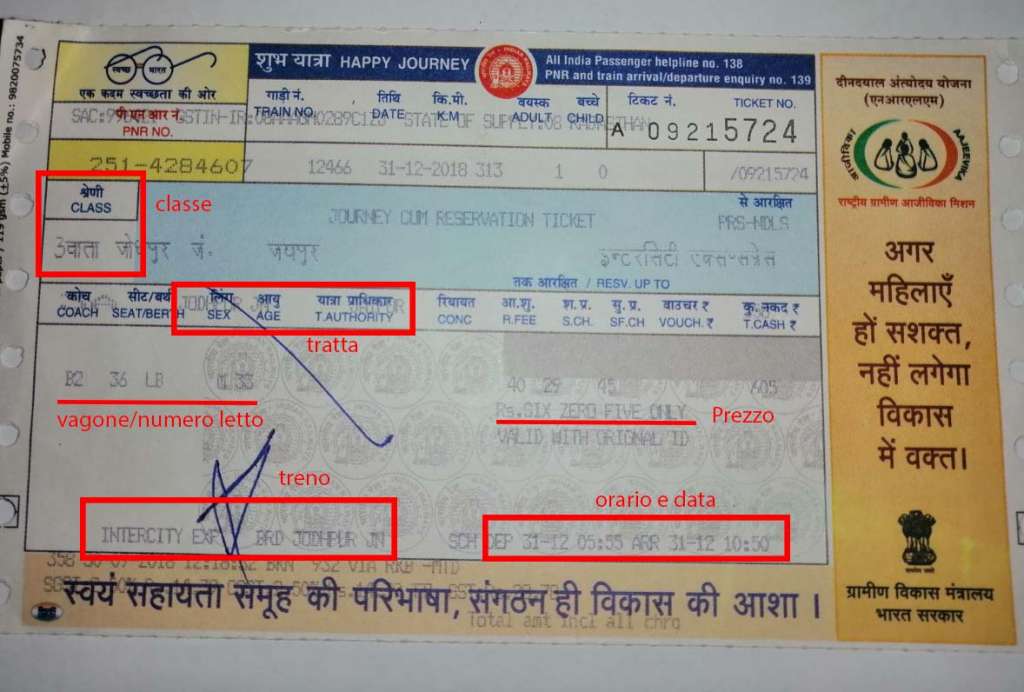 paper / 119 gsm (±5%) Mobile no.: 9820075734
स्वच्छ भारत
एक कदम स्वच्छता की ओर
शुभ यात्रा HAPPY JOURNEY
INDIAN RAILWAYS
All India Passenger helpline no. 138
PNR and train arrival/departure enquiry no. 139
पी.एन.आर नं.
PNR NO.
गाड़ी नं.
TRAIN NO.
तिथि
DATE
कि.मी.
K.M
वयस्क
ADULT
बच्चे
CHILD
टिकट नं.
TICKET NO.
A 09215724
251-4284607
12466 31-12-2018 313 1 0
/09215724
श्रेणी
CLASS
classe
JOURNEY CUM RESERVATION TICKET
से आरक्षित
PRS-NDLS
3वाता जोधपुर जं. जयपुर
तक आरक्षित / RESV. UP TO
कोच
COACH
सीट/बर्थ
SEAT/BERTH
लिंग
SEX
आयु
AGE
यात्रा प्राधिकार
T.AUTHORITY
रियायत
CONC
आ.शु.
R.FEE
श.प्र.
S.CH.
सु.प्र.
SF.CH
वाउचर ₹
VOUCH. ₹
कु. नकद ₹
T.CASH ₹
JODHPUR JN JAIPUR
tratta
B2 36 LB
33
40 29 45 605
vagone/numero letto
Rs.SIX ZERO FIVE ONLY
Prezzo
VALID WITH ORIGNAL ID
treno
orario e data
INTERCITY EXP BRD JODHPUR JN
SCH DEP 31-12 05:55 ARR 31-12 10:50
VIA RKB -MTD
स्वयं सहायता समूह की परिभाषा, संगठन ही विकास की आशा ।
Total amt incl all chrg
दीनदयाल अंत्योदय योजना
(एनआरएलएम)
आजीविका
AAJEEVIKA
राष्ट्रीय ग्रामीण आजीविका मिशन
अगर
महिलाएँ
हों सशक्त,
नहीं लगेगा
विकास
में वक्त।
ग्रामीण विकास मंत्रालय
भारत सरकार